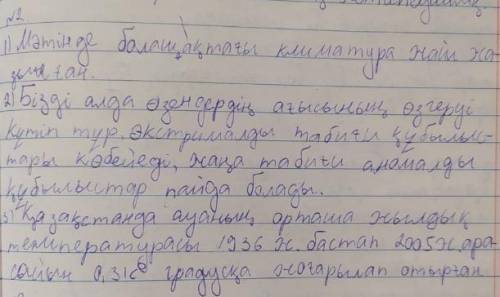 №2
1) Мәтінде болашақтағы климатура жайі жа-
зылған.
2) Бізді алда өзендердің ағысының өзгеруі
күтіп тұр, экстрималды табиғи құбылыс-
тары көбейеді, жаңа табиғи аномалды
құбылыстар пайда болады.
3) Қазақстанда ауаның орташа жылдық
температурасы 1936 ж. бастап 2005 ж ара-
0,31С° градусқа жоғарылап отырған